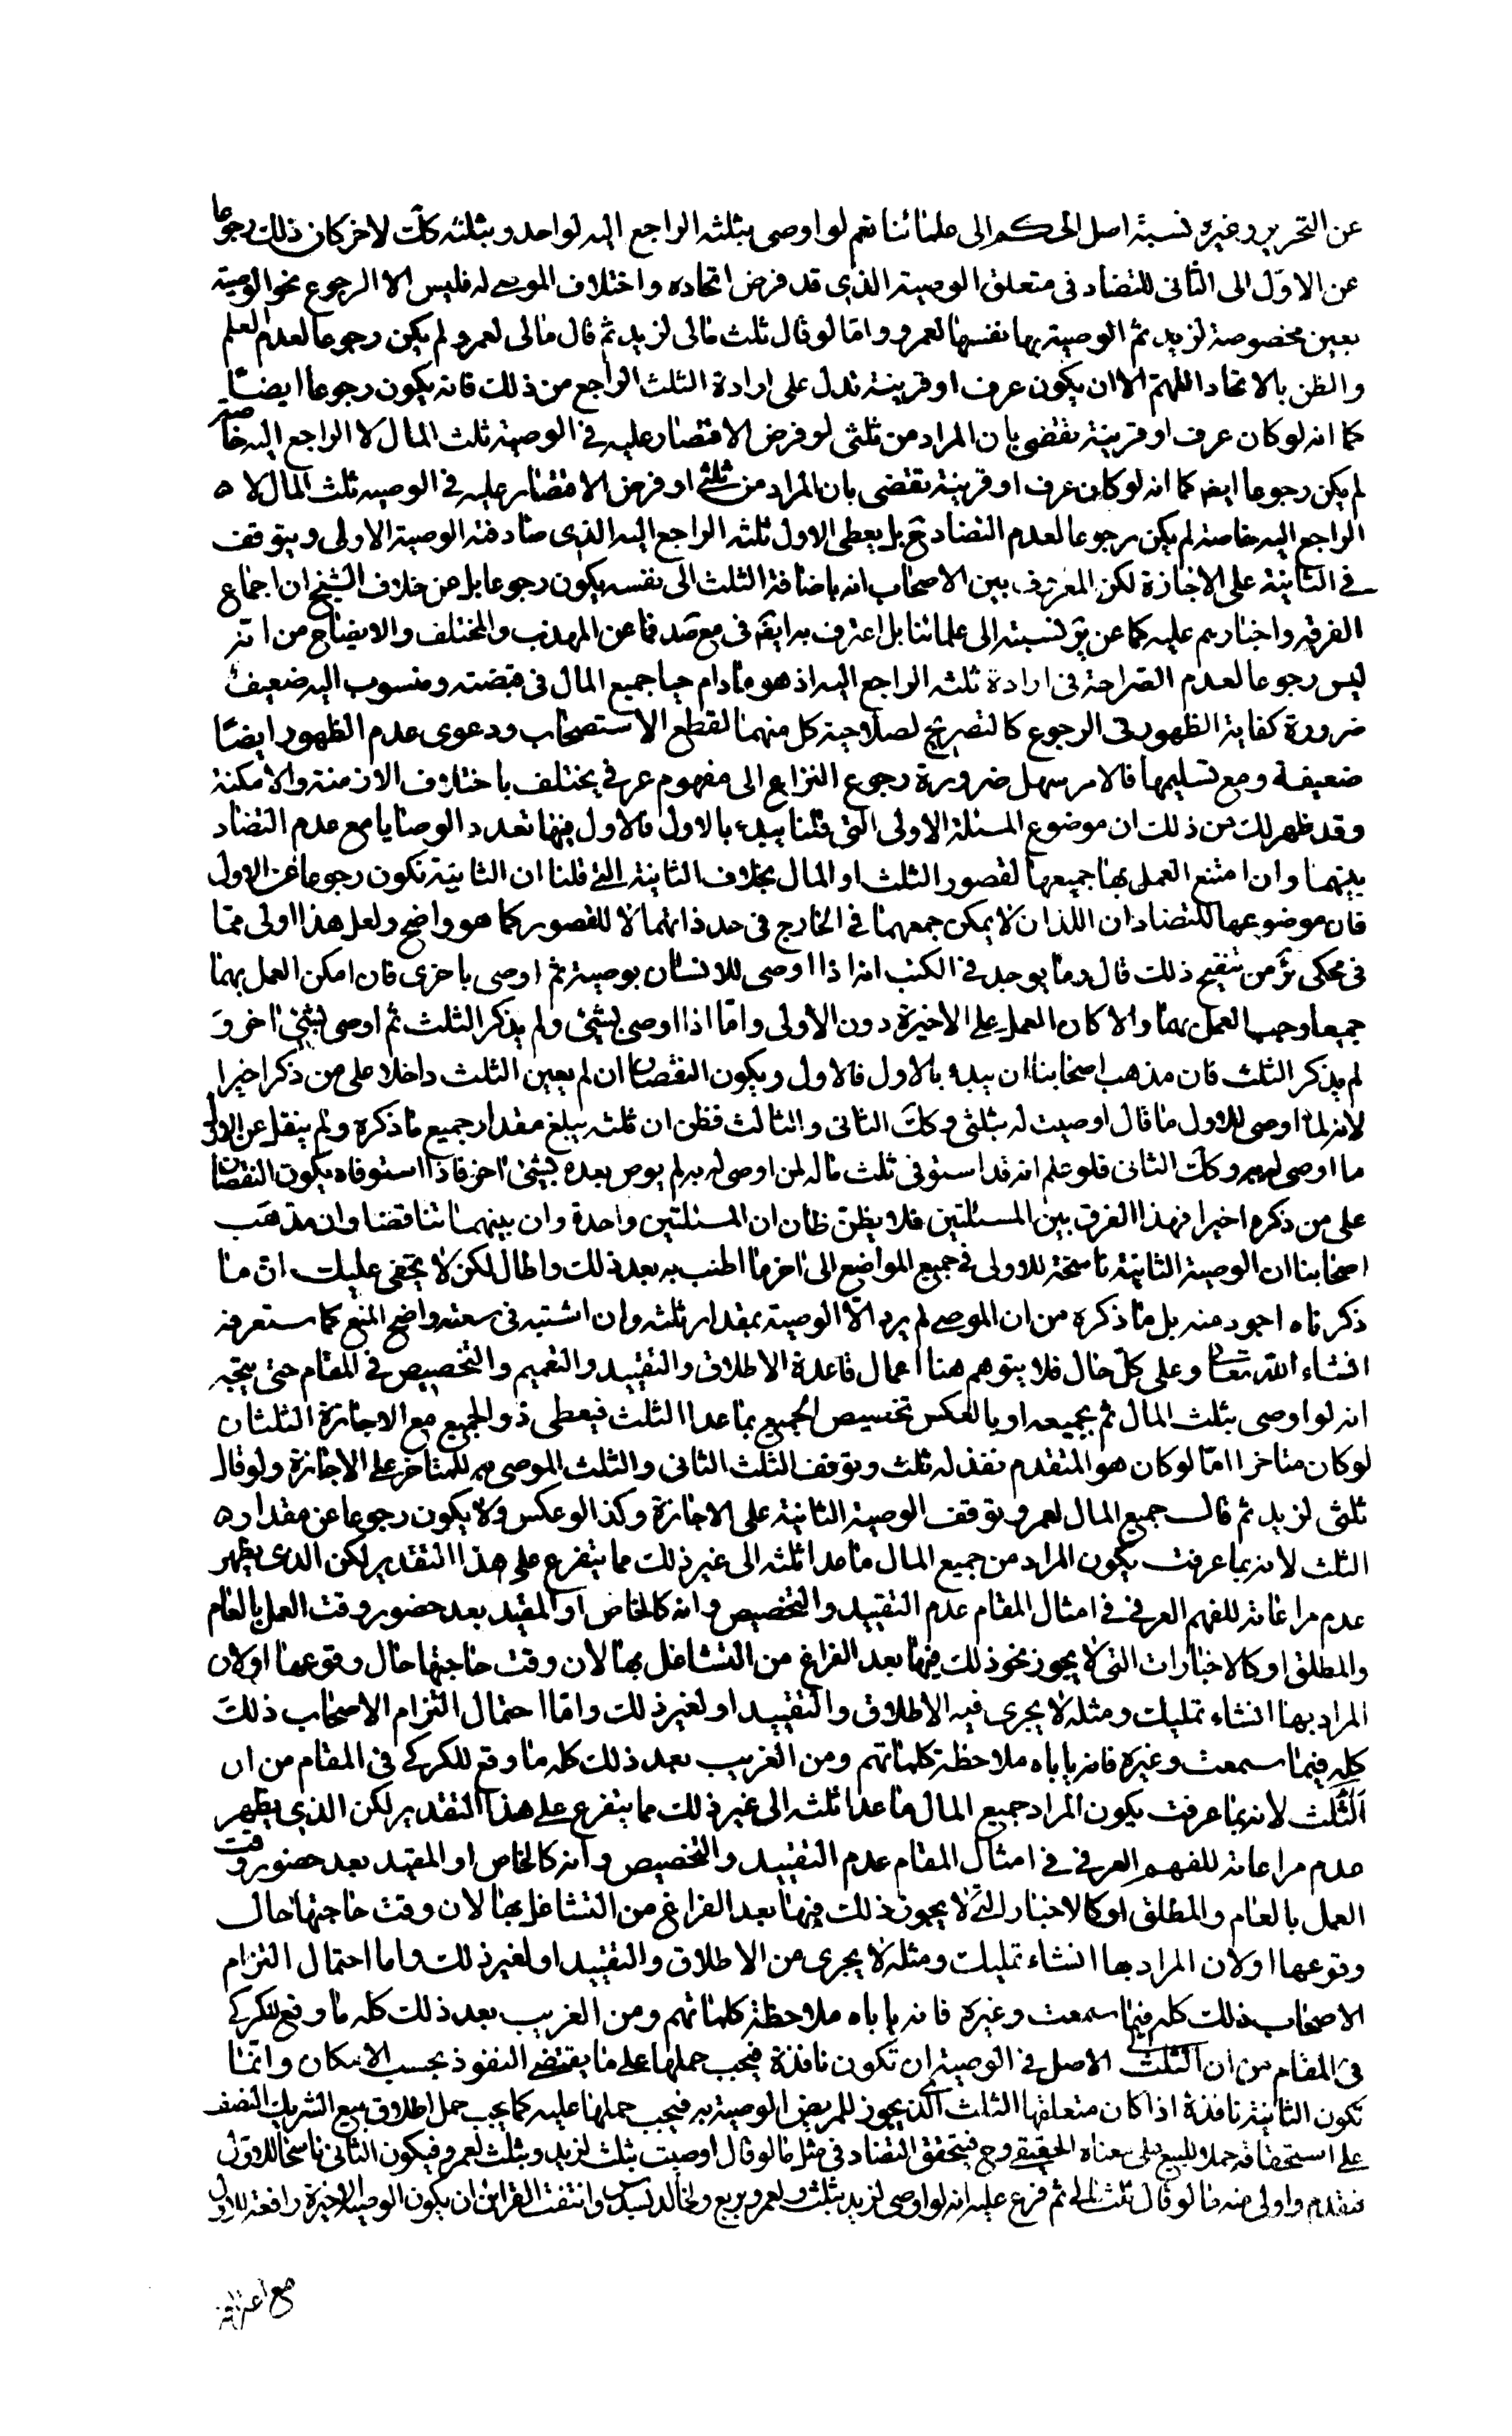 عن التحرير وغيره نسبة اصل الحكم الى علمائنا نعم لو اوصى بثلثه الراجع اليه لواحد وبثلثه كك لاخر كان ذلك رجوعا
عن الاوّل الى الثانى للتضاد فى متعلق الوصية الذى قد فرض اتحاده واختلاف الموصى له فليس الا الرجوع نحو الوصية
بعين مخصوصة لزيد ثم الوصية بها نفسها لعمرو وامّا لو قال ثلث مالى لزيد ثم قال مالى لعمرو لم يكن رجوعا لعدم العلم
والظن بالاتحاد اللهم الا ان يكون عرف او قرينة تدل على ارادة الثلث الراجع من ذلك فانه يكون رجوعا ايضًا
كما انه لو كان عرف او قرينة تقضى بان المراد من ثلثى لو فرض الاقتصار عليه فى الوصية ثلث المال لا الراجع اليه خاصة
لم يكن رجوعا ايضا كما انه لو كان عرف او قرينة تقضى بان المراد من ثلثى او فرض الاقتصار عليه فى الوصيه ثلث المال لا ه
الراجع اليه خاصة لم يكن رجوعا لعدم التضاد ح بل يعطى الاول ثلثه الراجع اليه الذى صادفته الوصية الاولى ويتوقف
فى الثانية على الاجازة لكن المعروف بين الاصحاب انه باضافة الثلث الى نفسه يكون رجوعا بل عن خلاف الشيخ ان اجماع
الفرقه واخبارهم عليه كما عن ير نسبته الى علمائنا بل اعترف به ايضا فى مع صد فما عن المهذب والمختلف والايضاح من انه
ليس رجوعا لعدم الصراحة فى ارادة ثلثه الراجع اليه اذ هو مادام حيا جميع المال فى قبضته ومنسوب اليه ضعيف
ضرورة كفاية الظهور فى الرجوع كالتصريح لصلاحية كل منهما لقطع الاستصحاب ودعوى عدم الظهور ايضًا
ضعيفة ومع تسليمها فالامر سهل ضرورة رجوع النزاع الى مفهوم عرفى يختلف باختلاف الازمنة والامكنة
وقد ظهر لك من ذلك ان موضوع المسئلة الاولى التى قلنا يبدء بالاول فالاول فيها تعدد الوصايا مع عدم التضاد
بينهما وان امتنع العمل بها جميعها لقصور الثلث او المال بخلاف الثانية التى قلنا ان الثانية تكون رجوعا عن الاولى
فان موضوعها المتضادان اللذان لا يمكن جمعهما فى الخارج فى حد ذاتهما لا للقصور كما هو واضح ولعل هذا اولى ممّا
فى محكى ئر من تنقيح ذلك قال وما يوجد فى الكتب انه اذا اوصى للانسان بوصية ثم اوصى باخرى فان امكن العمل بهما
جميعا وجب العمل بهما والا كان العمل على الاخيرة دون الاولى وامّا اذا اوصى بشئ ولم يذكر الثلث ثم اوصى بشئ اخر و
لم يذكر الثلث فان مذهب اصحابنا ان يبدء بالاول فالاول ويكون النقصان ان لم يعين الثلث داخلا على من ذكر اخيرا
لانه لما اوصى للاول ما قال اوصيت له بثلثى وكك الثانى والثالث فظن ان ثلثه يبلغ مقدار جميع ما ذكره ولم ينقل عن الاول
ما اوصى له به وكك الثانى فلو علم انه قد استوفى ثلث ماله لمن اوصى له به لم يوص بعده بشئ اخر فاذا استوفاه يكون النقصان
على من ذكره اخيرا فهذا الفرق بين المسئلتين فلا يظن ظان ان المسئلتين واحدة وان بينهما تناقضا وان مذهب
اصحابنا ان الوصية الثانية ناسخة للاولى فى جميع المواضع الى اخر ما اطنب به بعد ذلك واطال لكن لا يخفى عليك ان ما
ذكرناه اجود منه بل ما ذكره من ان الموصى لم يرد الّا الوصية بمقدار ثلثه وان اشتبه فى سعته واضح المنع كما ستعرفه
انشاء اللّه تعالى وعلى كلّ حال فلا يتوهم هنا اعمال قاعدة الاطلاق والتقييد والتعميم والتخصيص فى المقام حتى يتجه
انه لو اوصى بثلث المال ثم بجميعه او بالعكس تخصيص الجميع بما عدا الثلث فيعطى ذو الجميع مع الاجازة الثلثان
لو كان متاخرا امّا لو كان هو المتقدم نفذ له ثلث وتوقف الثلث الثانى والثلث الموصى به للمتاخر على الاجازة ولو قال
ثلثى لزيد ثم قال جميع المال لعمرو توقف الوصية الثانية على الاجازة وكذا لو عكس ولا يكون رجوعا عن مقدار ه
الثلث لانه بما عرفت يكون المراد من جميع المال ما عدا ثلثه الى غير ذلك مما يتفرع على هذا التقدير لكن الذى يظهر
عدم مراعاته للفهم العرفى فى امثال المقام عدم التقييد والتخصيص وانه كالخاص او المقيد بعد حضور وقت العمل بالعام
والمطلق او كالاخبارات التى لا يجوز نحو ذلك فيها بعد الفراغ من التشاغل بها لان وقت حاجتها حال وقوعها او لان
المراد بها انشاء تمليك ومثله لا يجرى فيه الاطلاق والتقييد او لغير ذلك وامّا احتمال التزام الاصحاب ذلك
كله فيما سمعت وغيره فانه ياباه ملاحظة كلماتهم ومن الغريب بعد ذلك كله ما وقع للكركى فى المقام من ان
الثّلث لانه بما عرفت يكون المراد جميع المال ما عدا ثلثه الى غير ذلك مما يتفرع على هذا التقدير لكن الذى يظهر
عدم مراعاته للفهم العرفى فى امثال المقام عدم التقييد والتخصيص وانه كالخاص او المقيد بعد حضور وقت
العمل بالعام والمطلق او كالاخبار التى لا يجوز ذلك فيها بعد الفراغ من التشاغل بها لان وقت حاجتها حال
وقوعها او لان المراد بها انشاء تمليك ومثله لا يجرى من الاطلاق والتقييد او لغير ذلك واما احتمال التزام
الاصحاب ذلك كله فيما سمعت وغيره فانه ياباه ملاحظة كلماتهم ومن الغريب بعد ذلك كله ما وقع للكركى
فى المقام من ان الثلث الاصل فى الوصية ان تكون نافذة فيجب حملها على ما يقتضى النفوذ بحسب الامكان وانّما
تكون الثانية نافذة اذا كان متعلقها الثلث الذى يجوز للمريض الوصية به فيجب حملها عليه كما يجب حمل اطلاق بيع الشريك النصف
على استحقاقه حملا للبيع على معناه الحقيقى وح فيتحقق التضاد فى مثل ما لو قال اوصيت بثلث لزيد وبثلث لعمرو فيكون الثانى ناسخا للاول
فيقدم واولى منه ما لو قال ثلث مالى ثم فرع عليه انه لو اوصى لزيد بثلث ولعمرو بربع ولخالد بسدس وانتفت القرائن ان يكون الوصية الاخيرة رافعة للاولى